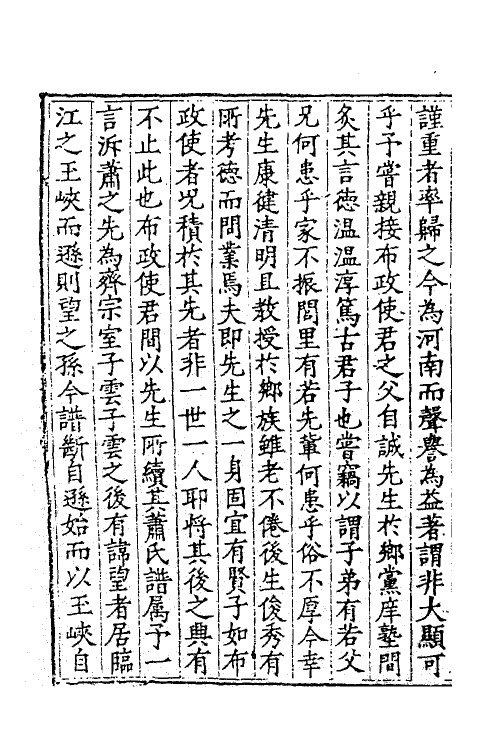 謹重者率歸之今為河南而聲譽為益著謂非大顯可
乎予嘗親接布政使君之父自誠先生於鄉黨庠塾間
炙其言徳温温淳篤古君子也嘗竊以謂子弟有若父
兄何患乎家不振閭里有若先軰何患乎俗不厚今幸
先生康健清明且教授於鄉族雖老不倦後生俊秀有
所考徳而問業焉夫即先生之一身固宜有賢子如布
政使者况積於其先者非一世一人耶將其後之興有
不止此也布政使君間以先生所續其蕭氏譜属予一
言泝蕭之先為齊宗室子雲子雲之後有諱望者居臨
江之王峽而遜則望之孫今譜斷自遜始而以王峽自